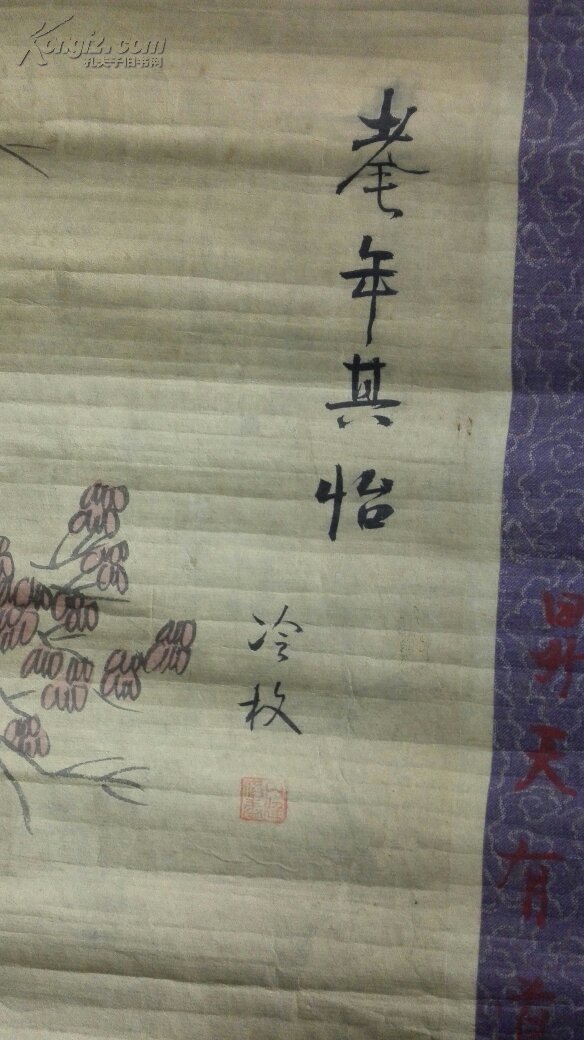 Kongfz.com
孔夫子旧书网
耄年其怡
冷枚
昇天有